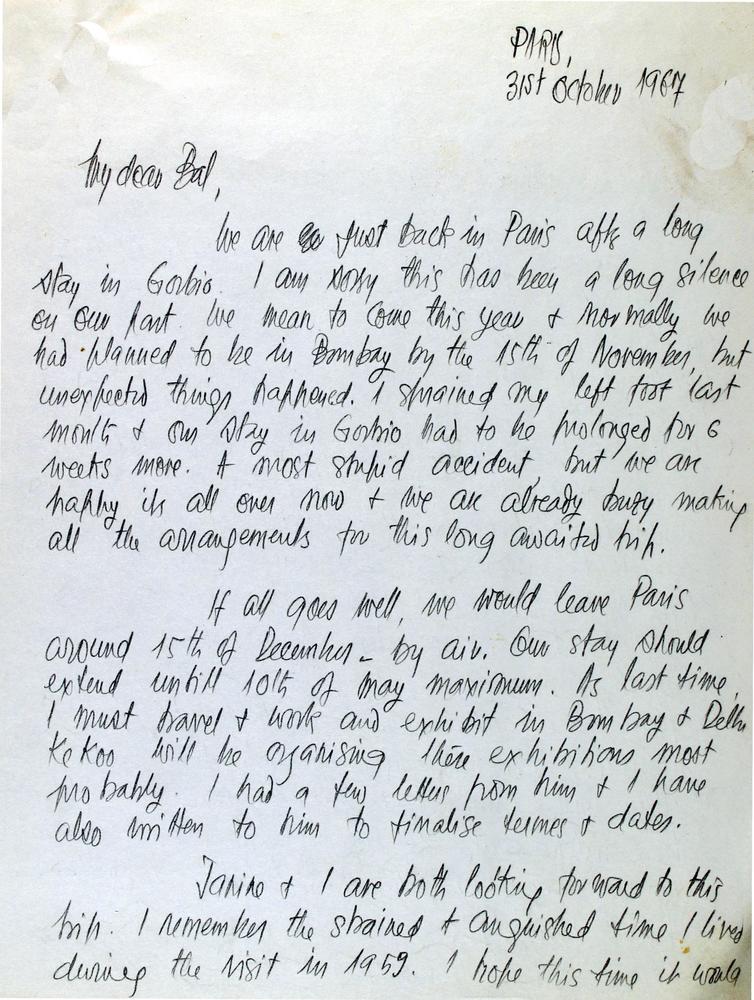 PARIS,
31st October 1967
My dear Bal,
We are just back in Paris after a long
stay in Gorbio. I am sorry this has been a long silence
on our part. We mean to come this year & normally we
had planned to be in Bombay by the 15th of November, but
unexpected things happened. I sprained my left foot last
month & our stay in Gorbio had to be prolonged for 6
weeks more. A most stupid accident, but we are
happy it's all over now & we are already busy making
all the arrangements for this long awaited trip.
If all goes well, we would leave Paris
around 15th of December - by air. Our stay should
extend untill 10th of May maximum. As last time,
I must travel & work and exhibit in Bombay & Delhi
Kekoo will be organising these exhibitions most
probably. I had a few letters from him & I have
also written to him to finalise termes & dates.
Janine & I are both looking forward to this
trip. I remember the strained & anguished time I lived
during the visit in 1959. I hope this time it would